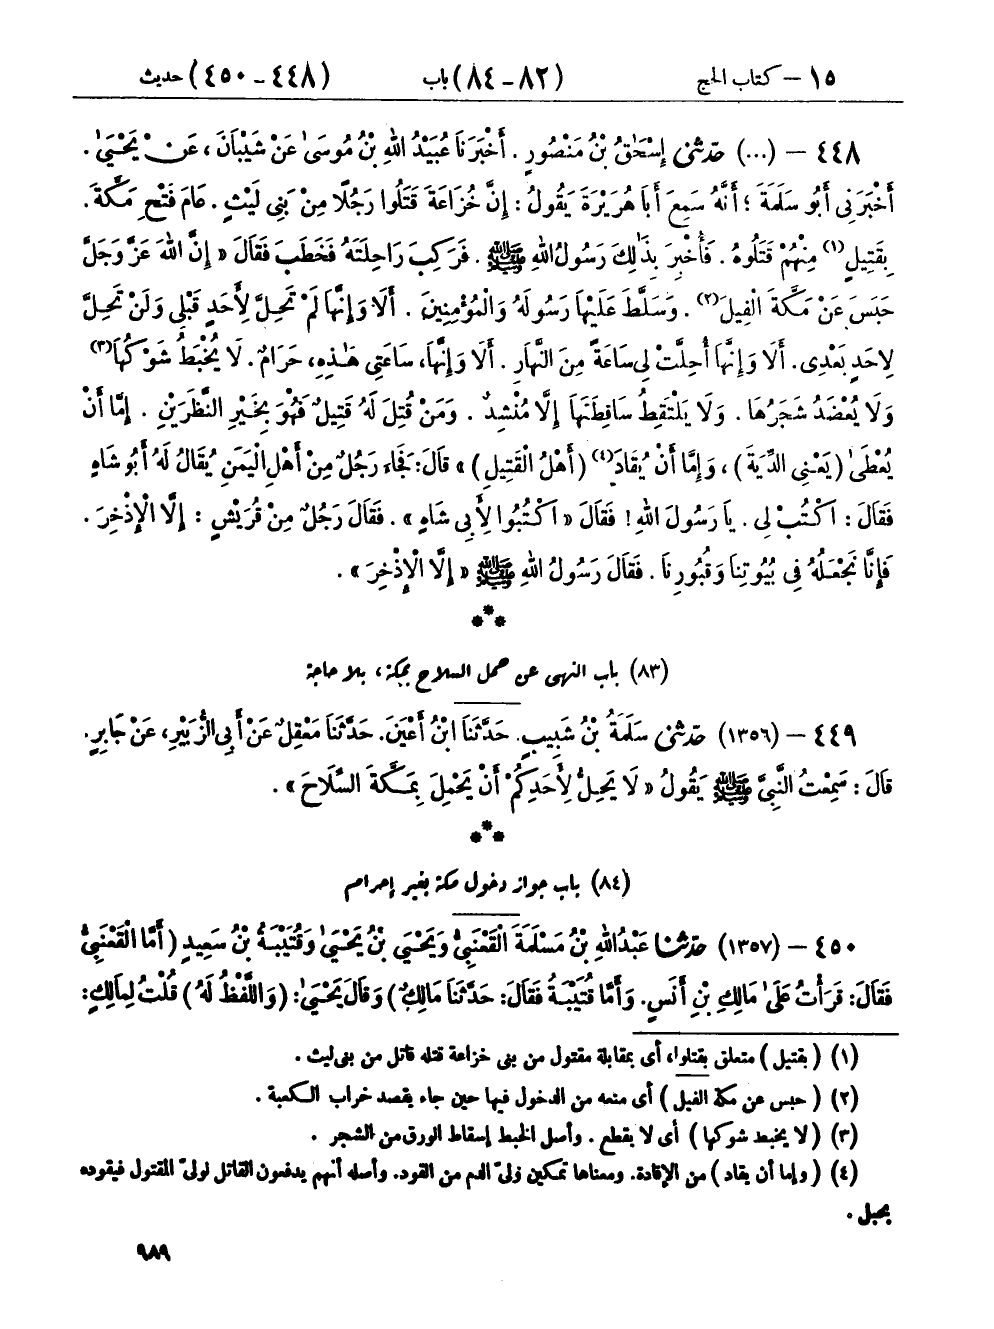 ١٥ – كتاب الحج (٨٢-٨٤) باب (٤٤٨-٤٥٠) حديث
٤٤٨ – (...) حَدَّثَنِي إِسْحَاقُ بْنُ مَنْصُورٍ . أَخْبَرَنَا عُبَيْدُ اللهِ بْنُ مُوسَىٰ عَنْ شَيْبَانَ ، عَنْ يَحْيَىٰ .
أَخْبَرَنِي أَبُو سَلَمَةَ ؛ أَنَّهُ سَمِعَ أَبَا هُرَيْرَةَ يَقُولُ : إِنَّ خُزَاعَةَ قَتَلُوا رَجُلًا مِنْ بَنِي لَيْثٍ . عَامَ فَتْحِ مَكَّةَ .
بِقَتِيلٍ(١) مِنْهُمْ قَتَلُوهُ . فَأُخْبِرَ بِذَٰلِكَ رَسُولُ اللهِ ﷺ . فَرَكِبَ رَاحِلَتَهُ فَخَطَبَ فَقَالَ « إِنَّ اللهَ عَزَّ وَجَلَّ
حَبَسَ عَنْ مَكَّةَ الْفِيلَ(٢) . وَسَلَّطَ عَلَيْهَا رَسُولَهُ وَالْمُؤْمِنِينَ . أَلَا وَإِنَّهَا لَمْ تَحِلَّ لِأَحَدٍ قَبْلِي وَلَنْ تَحِلَّ
لِأَحَدٍ بَعْدِي . أَلَا وَإِنَّهَا أُحِلَّتْ لِي سَاعَةً مِنَ النَّهَارِ . أَلَا وَإِنَّهَا، سَاعَتِي هَٰذِهِ، حَرَامٌ . لَا يُخْبَطُ شَوْكُهَا(٣)
وَلَا يُعْضَدُ شَجَرُهَا . وَلَا يَلْتَقِطُ سَاقِطَتَهَا إِلَّا مُنْشِدٌ . وَمَنْ قُتِلَ لَهُ قَتِيلٌ فَهُوَ بِخَيْرِ النَّظَرَيْنِ . إِمَّا أَنْ
يُعْطَىٰ (يَعْنِي الدِّيَةَ) ، وَإِمَّا أَنْ يُقَادَ(٤) (أَهْلُ الْقَتِيلِ) » قَالَ : فَجَاءَ رَجُلٌ مِنْ أَهْلِ الْيَمَنِ يُقَالُ لَهُ أَبُو شَاهٍ
فَقَالَ : اكْتُبْ لِي . يَا رَسُولَ اللهِ ! فَقَالَ « اكْتُبُوا لِأَبِي شَاهٍ » . فَقَالَ رَجُلٌ مِنْ قُرَيْشٍ : إِلَّا الْإِذْخِرَ .
فَإِنَّا نَجْعَلُهُ فِي بُيُوتِنَا وَقُبُورِنَا . فَقَالَ رَسُولُ اللهِ ﷺ « إِلَّا الْإِذْخِرَ » .
***
(٨٣) باب النهى عن حمل السلاح بمكة، بلا حاجة
٤٤٩ – (١٣٥٦) حَدَّثَنِي سَلَمَةُ بْنُ شَبِيبٍ . حَدَّثَنَا ابْنُ أَعْيَنَ . حَدَّثَنَا مَعْقِلٌ عَنْ أَبِي الزُّبَيْرِ، عَنْ جَابِرٍ .
قَالَ : سَمِعْتُ النَّبِيَّ ﷺ يَقُولُ « لَا يَحِلُّ لِأَحَدِكُمْ أَنْ يَحْمِلَ بِمَكَّةَ السِّلَاحَ » .
***
(٨٤) باب جواز دخول مكة بغير إحرام
٤٥٠ – (١٣٥٧) حَدَّثَنَا عَبْدُ اللهِ بْنُ مَسْلَمَةَ الْقَعْنَبِيُّ وَيَحْيَىٰ بْنُ يَحْيَىٰ وَقُتَيْبَةُ بْنُ سَعِيدٍ (أَمَّا الْقَعْنَبِيُّ
فَقَالَ : قَرَأْتُ عَلَىٰ مَالِكِ بْنِ أَنَسٍ . وَأَمَّا قُتَيْبَةُ فَقَالَ : حَدَّثَنَا مَالِكٌ) وَقَالَ يَحْيَىٰ : (وَاللَّفْظُ لَهُ) قُلْتُ لِمَالِكٍ :
(١) (بقتيل) متعلق بقتلوا، أى بمقابلة مقتول من بنى خزاعة قتله قاتل من بنى ليث .
(٢) (حبس عن مكة الفيل) أى منعه من الدخول فيها حين جاء يقصد خراب الكعبة .
(٣) (لا يخبط شوكها) أى لا يقطع . وأصل الخبط إسقاط الورق من الشجر .
(٤) (وإما أن يقاد) من الإقادة. ومعناها تمكين ولىّ الدم من القود. وأصله أنهم يدفعون القاتل لولىّ المقتول فيقوده
بحبل .
٩٨٩